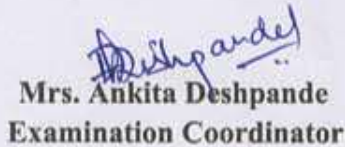 ADeshpande
Mrs. Ankita Deshpande
Examination Coordinator